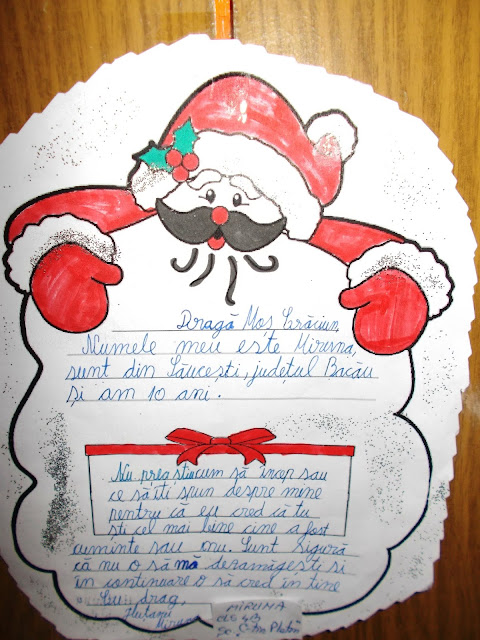 Dragă Moș Crăciun,
Numele meu este Miruna,
sunt din Săucești, județul Bacău
și am 10 ani.
Nu prea știu cum să încep sau
ce să iti spun despre mine
pentru că eu cred că tu
sti cel mai bine cine a fost
cuminte sau nu. Sunt sigură
că nu o să mă dezamăgești si
în continuare o să cred în tine
Cu drag,
Miruna
MIRUNA